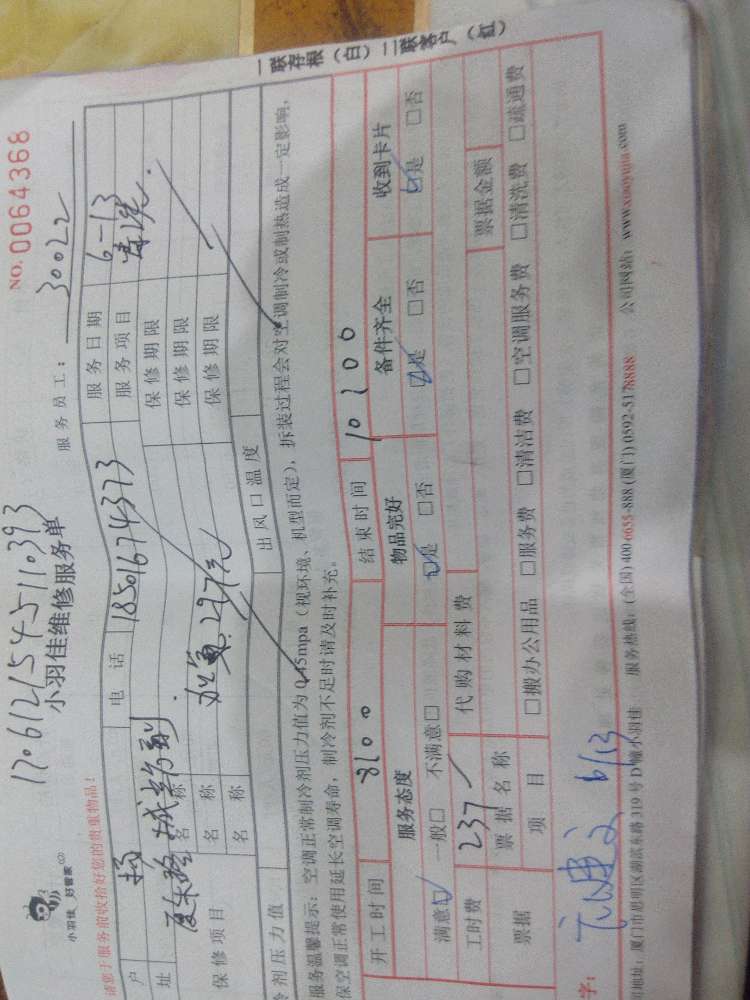 1706121545110393
小羽佳 好管家
小羽佳维修服务单
NO. 0064368
请您于服务前收拾好您的贵重物品！
服务员工： 30022
户 杨 电话 18501674373 服务日期 6-13
址 服务项目
保修项目 名称 保修期限
名称 保修期限
名称 保修期限
冷剂压力值 出风口温度
服务温馨提示：空调正常制冷剂压力值为0.45mpa（视环境、机型而定），拆装过程会对空调制冷或制热造成一定影响，
保空调正常使用延长空调寿命，制冷剂不足时请及时补充。
开工时间 8:00 结束时间 10:00
服务态度 物品完好 备件齐全 收到卡片
满意□ 一般□ 不满意□ □是 □否 □是 □否 □是 □否
工时费 237 代购材料费
票据 票据名称 票据金额
项目 □搬办公用品 □服务费 □清洁费 □空调服务费 □清洗费 □疏通费
字： 6/13
司地址：厦门市思明区湖滨东路319号D幢小羽佳 服务热线：(全国) 400-6655-888 (厦门) 0592-5178888 公司网站：www.xiaoyujia.com
一联存根（白）二联客户（红）